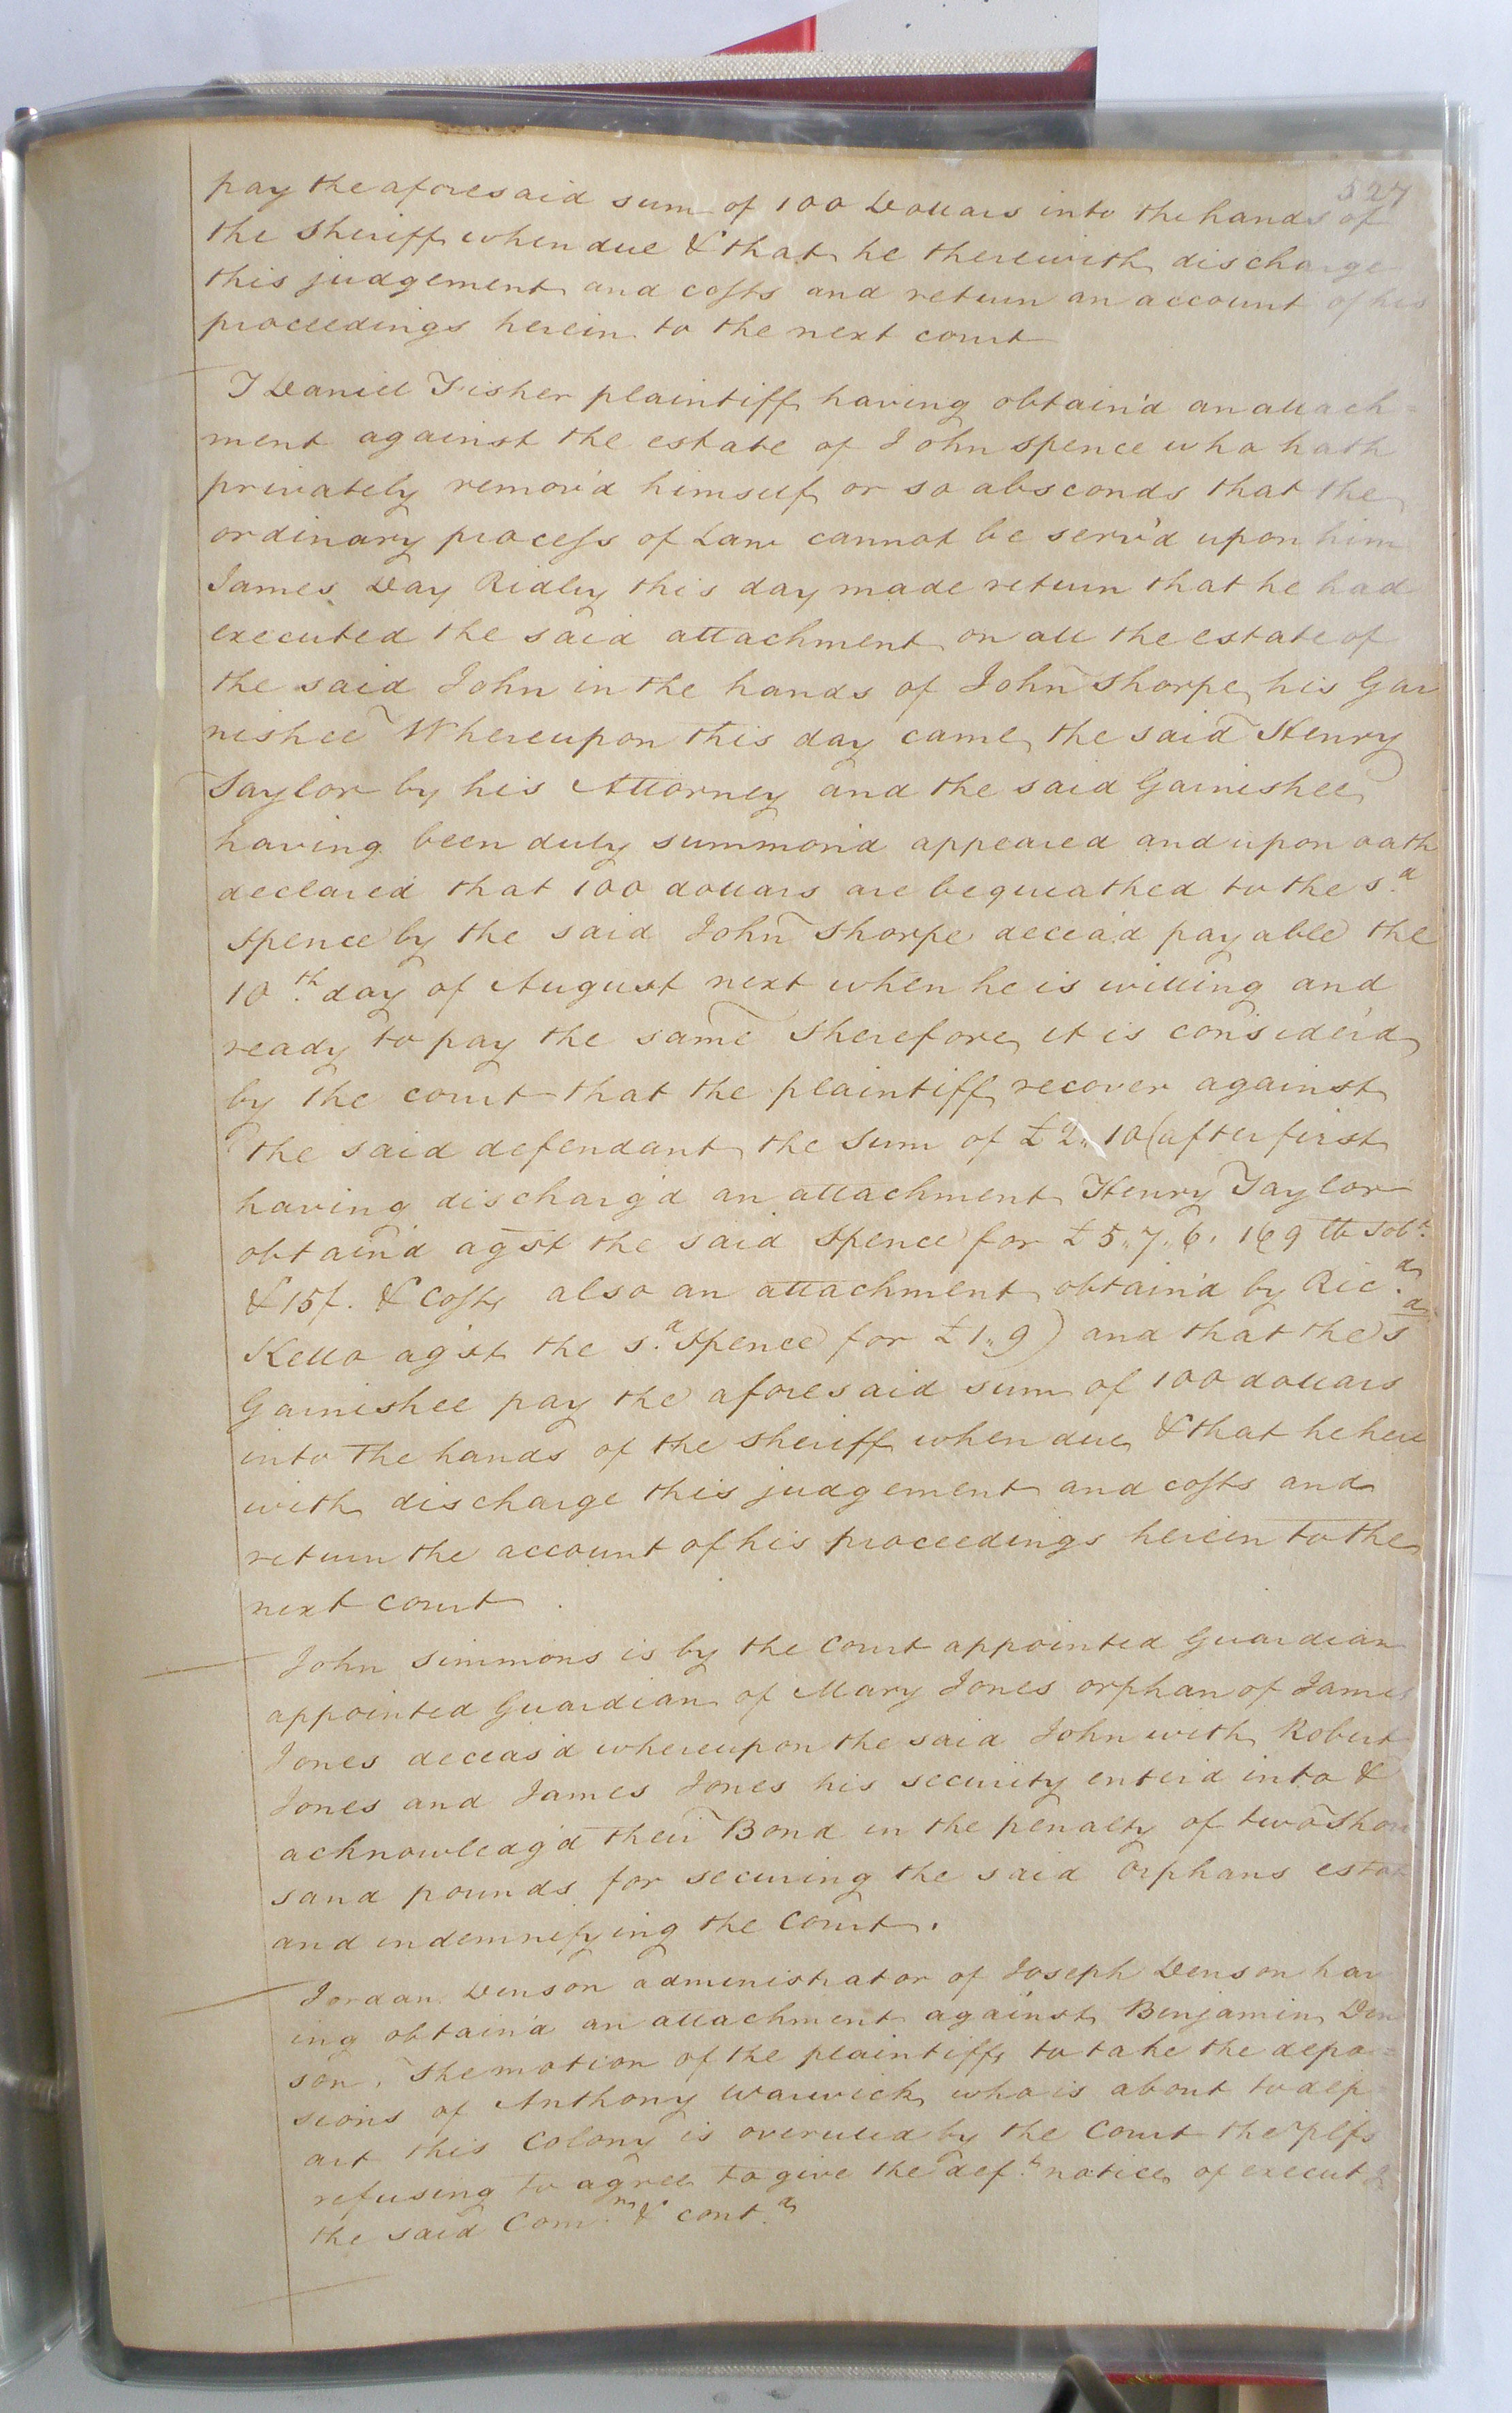 527
pay the aforesaid sum of 100 Dollars into the hands of
the Sheriff when due & that he therewith discharge
this judgement and costs and return an account of his
proceedings herein to the next court
I Daniel Fisher plaintiff having obtain'd an attach=
ment against the estate of John Spence who hath
privately remov'd himself or so absconds that the
ordinary process of Law cannot be serv'd upon him
James Day Ridley this day made return that he had
executed the said attachment on all the estate of
the said John in the hands of John Thorpe his Gar
nishee Whereupon this day came the said Henry
Taylor by his Attorney and the said Garnishee
having been duly summon'd appeared and upon oath
declared that 100 dollars are bequeathed to the s.d
Spence by the said John Thorpe decea'd payable the
10.th day of August next when he is willing and
ready to pay the same Therefore it is consider'd
by the court that the plaintiff recover against
the said defendant the Sum of £2,, 10 (after first
having discharg'd an attachment Henry Taylor
obtain'd agst the said Spence for £5,,7,,6. 169 lb Tob.o
& 15/. & Costs also an attachment obtain'd by Ric.d
Kello agst the s.d Spence for £1,,9) and that the s.d
Garnishee pay the aforesaid sum of 100 dollars
into the hands of the sheriff when due & that he here
with discharge this judgement and costs and
return the account of his proceedings herein to the
next court
John Simmons is by the Court appointed Guardian
appointed Guardian of Mary Jones orphan of James
Jones deceas'd whereupon the said John with Robert
Jones and James Jones his security enter'd into &
acknowledg'd their Bond in the penalty of two Thou
sand pounds for securing the said Orphans estat
and indemnifying the Court.
Jordan Denson administrator of Joseph Denson hav
ing obtain'd an attachment against Benjamin Den
son, The motion of the plaintiffs to take the depo=
sions of Anthony Warwick who is about to dep
art this Colony is overruled by the Court the plfs
refusing to agree to give the def.t notice of execut.g
the said Com.n & cont.d